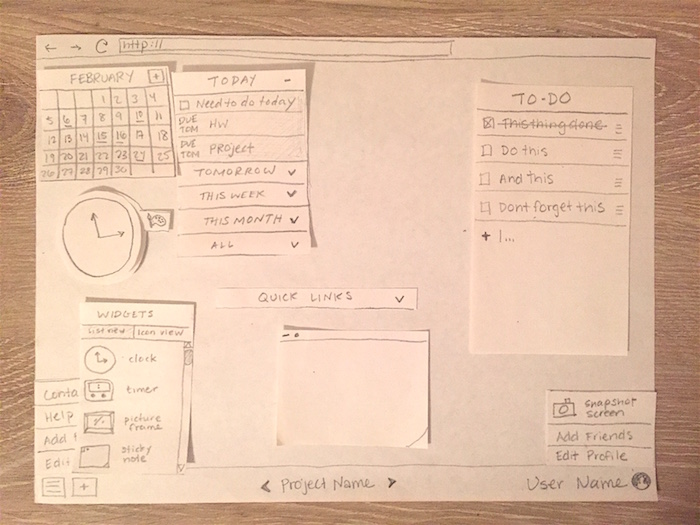 http://
FEBRUARY +
1 2 3 4
5 6 7 8 9 10 11
12 13 14 15 16 17 18
19 20 21 22 23 24 25
26 27 28 29 30
TODAY -
Need to do today
DUE TOM HW
DUE TOM PROJECT
TOMORROW
THIS WEEK
THIS MONTH
ALL
TO-DO
This thing done
Do this
And this
Dont forget this
+ I...
QUICK LINKS
WIDGETS
List view Icon view
clock
timer
picture
frame
sticky
note
Conta
Help
Add
Edit
snapshot
screen
Add Friends
Edit Profile
+
< PROJECT NAME >
User Name